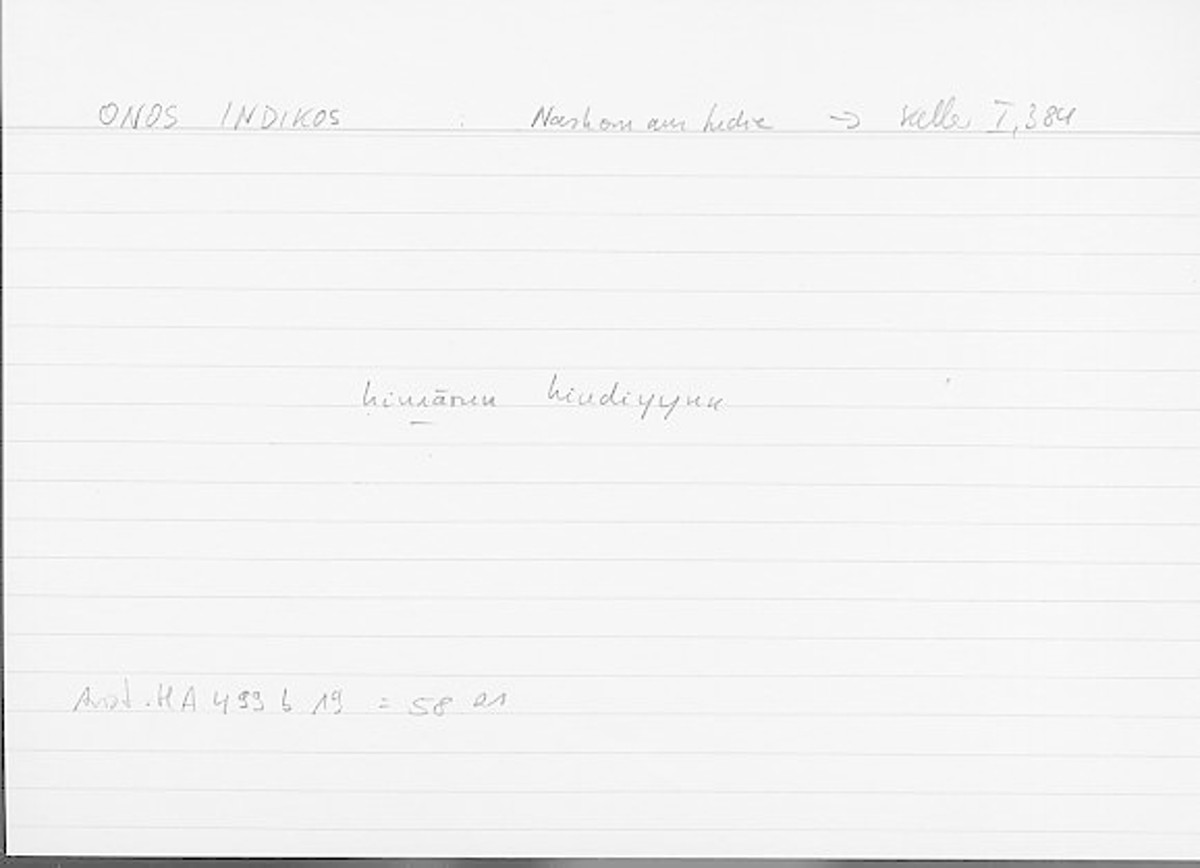 ONOS INDIKOS : Nashorn aus Indie → Keller I, 384
ḥimārun hindiyyun
Arist. HA 499 b 19 = 58 21